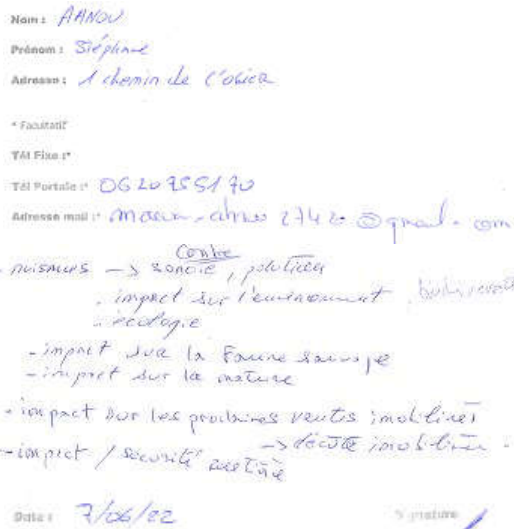 Nom : AANOU
Prénom : Stéphane
Adresse : 1 chemin de l'obier
* Facultatif
Tél Fixe :*
Tél Portale :* 0620755170
Adresse mail :* 27420@gmail.com
Contre
nuisances -> sonore, pollution
- impact sur l'environnement,
- écologie
- impact sur la Faune sauvage
- impact sur la nature
- impact sur les prochaines ventes imobilières
-> décote imobilière.
- impact / sécurité
Date : 7/06/22
Signature